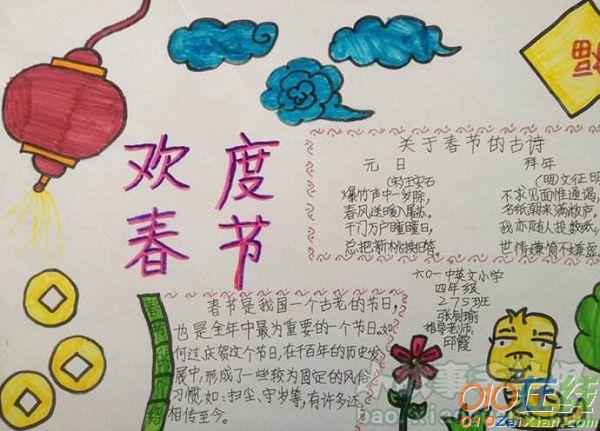 福
欢 度
春 节
关于春节的古诗
元 日
(宋)王安石
爆竹声中一岁除,
春风送暖入屠苏.
千门万户曈曈日,
总把新桃换旧符.
拜年
(明)文征明
不求见面惟通谒,
名纸朝来满敝庐.
我亦随人投数纸,
世情嫌简不嫌虚
六0一中英文小学
四年级
275班
指导老师:
邱霞
春节
绍
春节是我国一个古老的节日,
也是全年中最为重要的一个节日.如
何过.庆贺这个节日,在千百年的历史发
展中,形成了一些较为固定的风俗
习惯,如:扫尘、守岁等,有许多还
相传至今。
010在线
010zaixian.com